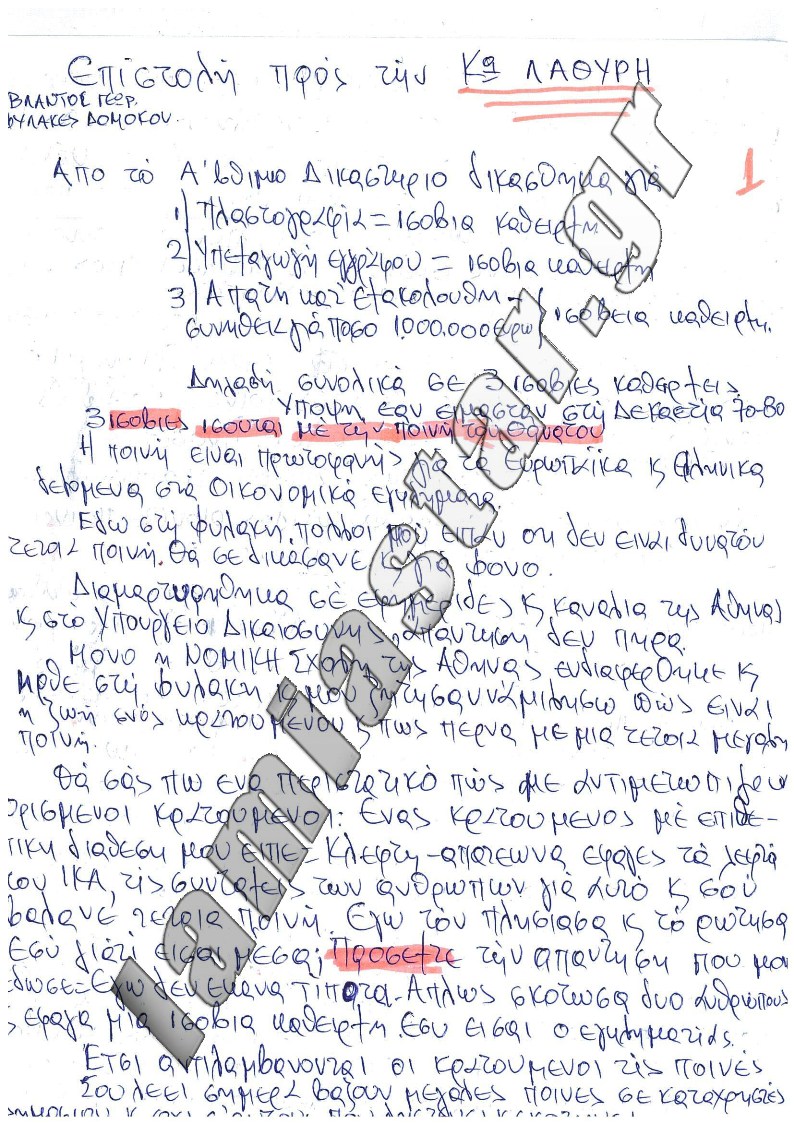 Επιστολή πρός την Κα ΛΑΘΥΡΗ
ΒΛΑΝΤΟΣ ΓΕΩΡ.
ΦΥΛΑΚΕΣ ΔΟΜΟΚΟΥ.
1
Απο το Α'βθμιο Δικαστηριο δικασθηκα για
1) Πλαστογραφία = ισοβια καθειρξη
2) Υπεξαγωγή εγγράφου = ισοβια καθειρξη
3) Απατη κατ εξακολουθη-
συνηθεις για ποσο 1.000.000 ευρω ισοβεια καθειρξη.
Δηλαδή συνολικά σε 3 ισοβιες καθειρξεις
Υποψη εαν ειμασταν στη Δεκαετία 70-80
3 ισοβιες ισουται με την ποινή του θανατου
Η ποινή ειναι πρωτοφανής για τα Ευρωπαϊκα κ Ελληνικα
δεδομενα στα Οικονομικά εγκληματα.
Εδω στη φυλακή πολλοι μου ειπαν οτι δεν ειναι δυνατόν
τετοια ποινή. Θα σε δικασανε κ για φονο.
Διαμαρτυρηθηκα σε εφημεριδες κ καναλια της Αθηνας
κ στο Υπουργειο Δικαιοσυνης, απαντηση δεν πηρα.
Μονο η ΝΟΜΙΚΗ Σχολη της Αθηνας ενδιαφερθηκε κ
ηρθε στη φυλακη κ μου ζητησαν να μιλησω πως ειναι
η ζωη ενός κρατουμενου κ πως περνα με μια τετοια μεγαλη
ποινή.
Θα σας πω ενα περιστατικό πώς με αντιμετωπιζουν
ορισμενοι κρατουμενοι: Ενας κρατουμενος με επιθε-
τικη διαθεση μου ειπε = Κλεφτη - απατεωνα εφαγες τα λεφτα
του ΙΚΑ, τις συνταξεις των ανθρωπων για αυτο κ σου
βαλανε τετοια ποινή. Εγω τον πλησιασα κ το ρωτησα
Εσύ γιατί εισαι μεσα; Προσεξτε την απαντηση που μου
εδωσε = Εγω δεν εκανα τιποτα - Απλως σκοτωσα δυο ανθρωπους
κ εφαγα μια ισοβια καθειρξη. Εσυ εισαι ο εγκληματίας.
Έτσι αντιλαμβανονται οι κρατουμενοι τις ποινές
Σου λεει σημερα βαζουν μεγαλες ποινες σε καταχραστές
lamiastar.gr